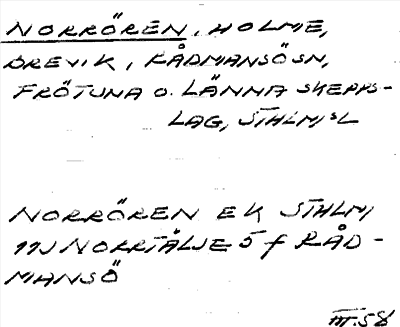 NORRÖREN, HOLME,
BREVIK, RÅDMANSÖSN,
FRÖTUNA O. LÄNNA SKEPPS-
LAG, STHLMSL
NORRÖREN EK STHLM
11J NORRTÄLJE 5 f RÅD-
MANSÖ
III.58